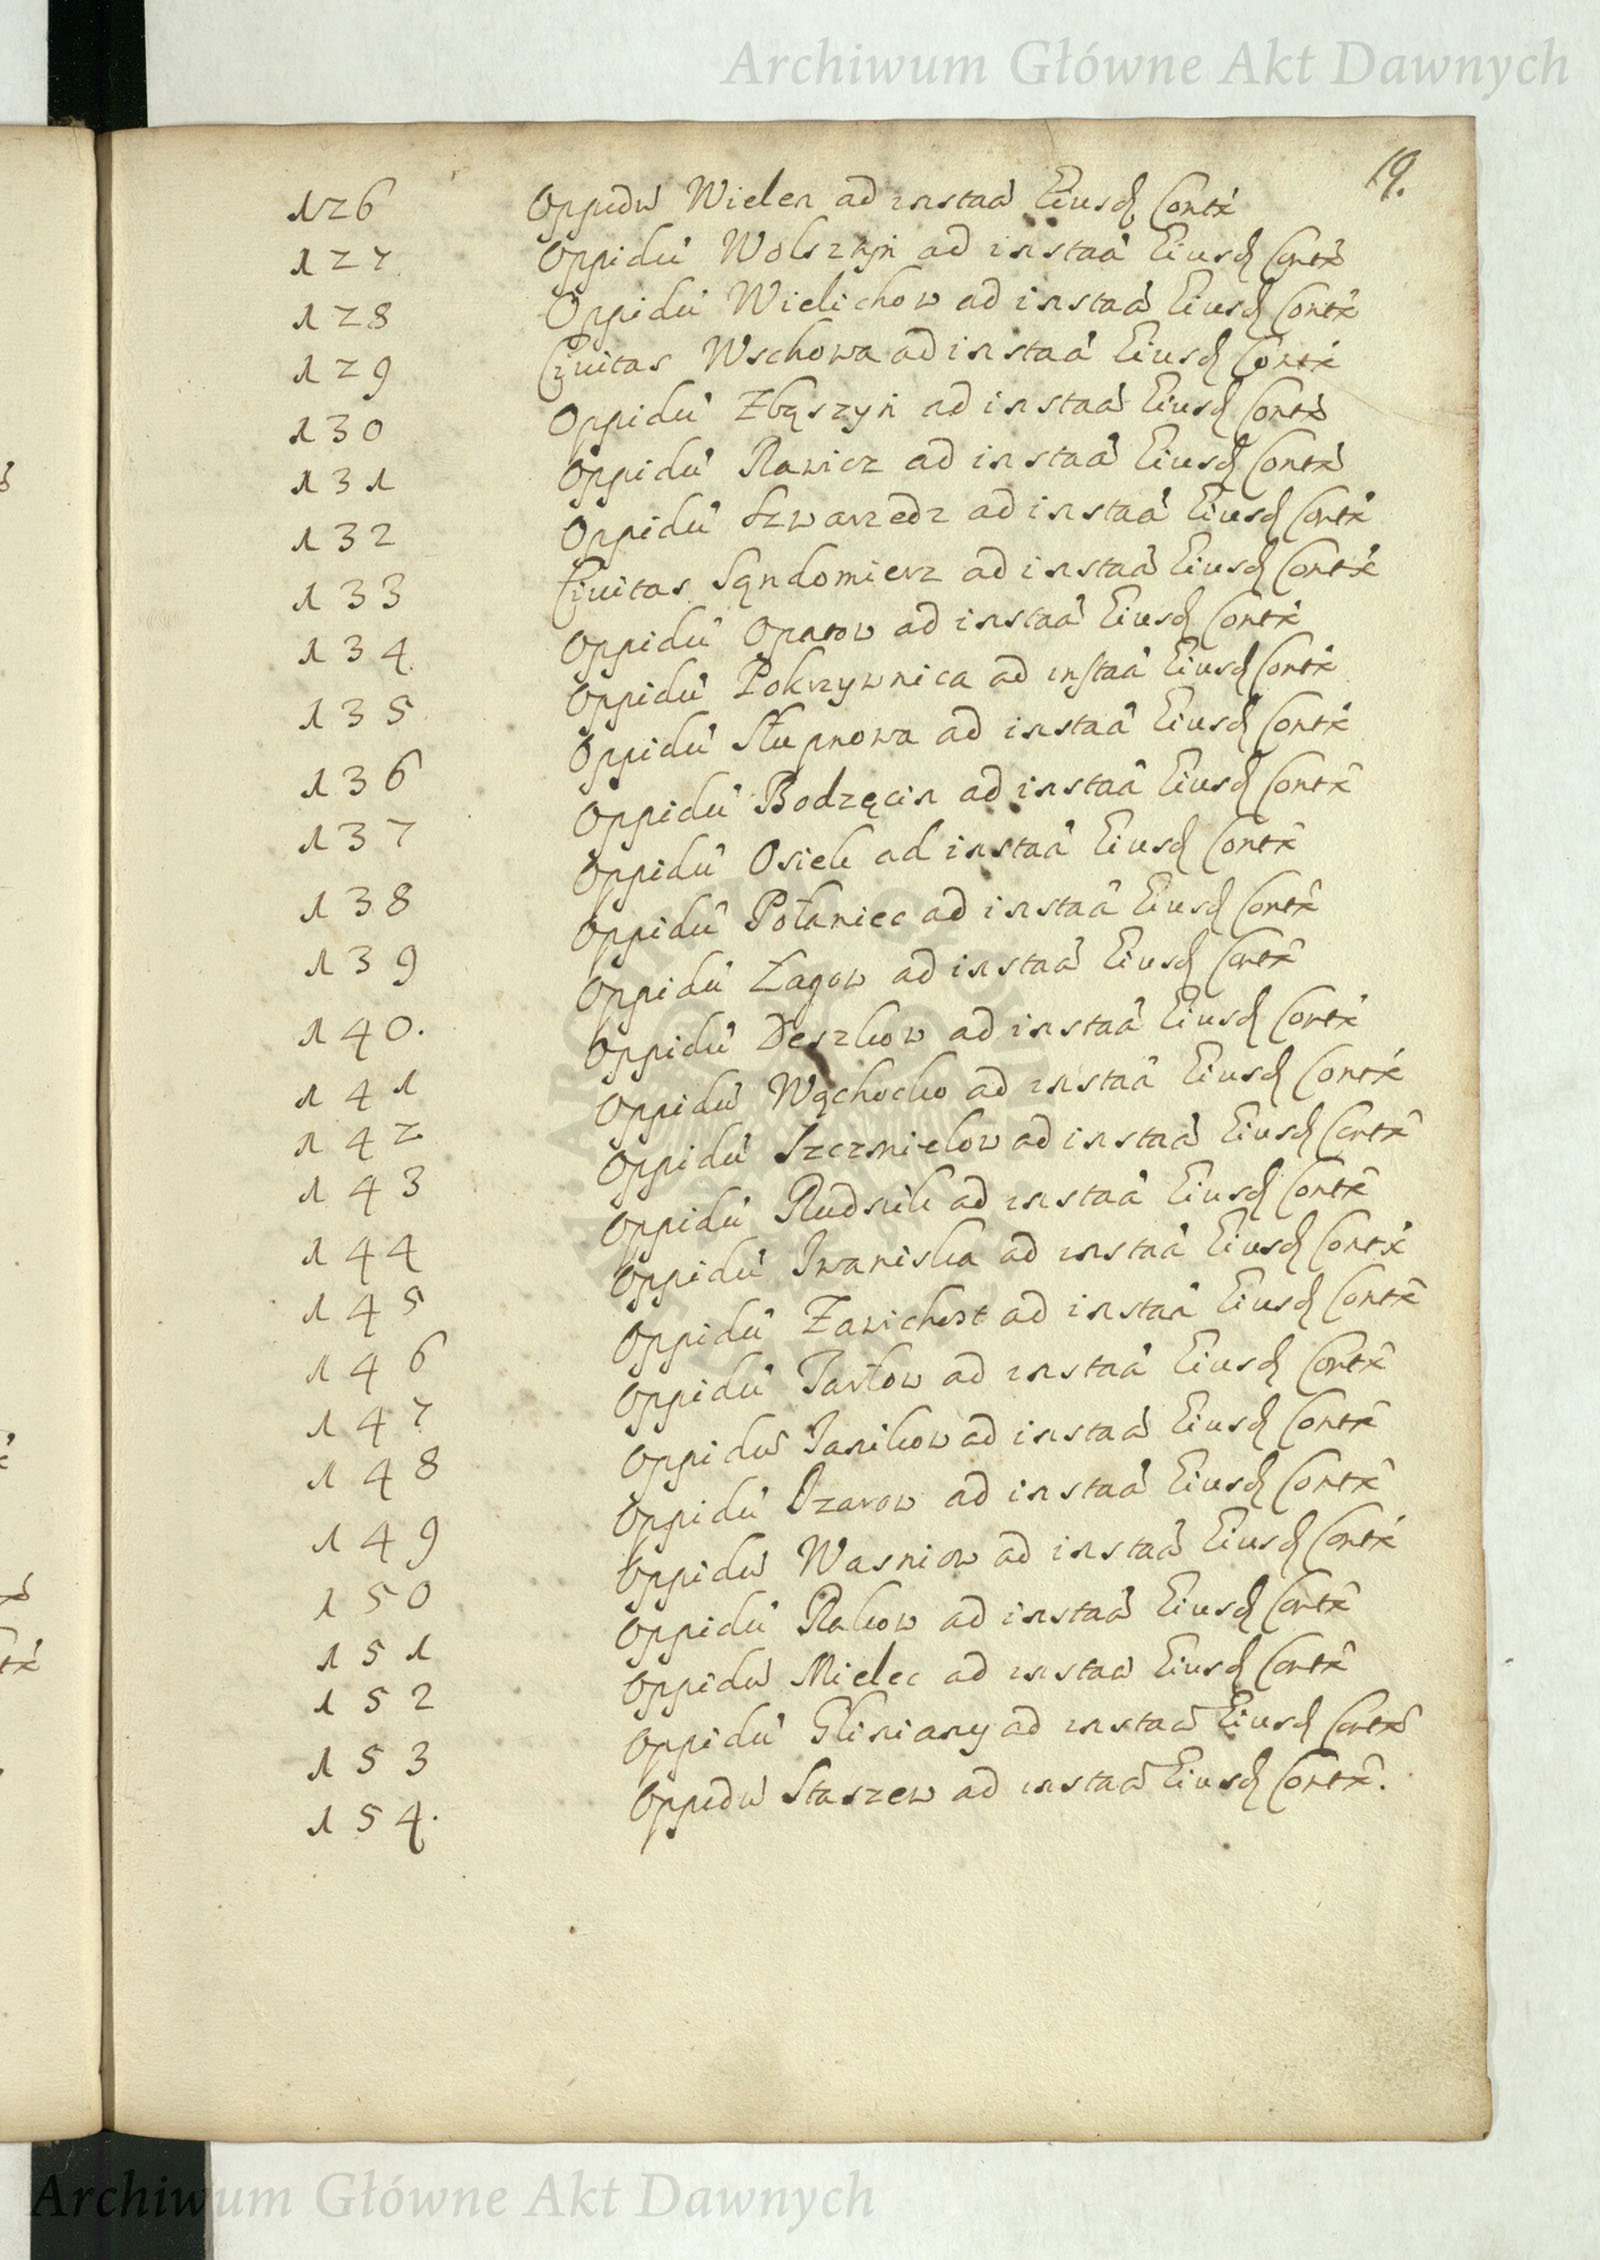 Archiwum Główne Akt Dawnych
19.
126 Oppidu Wielen ad instaa Eiusd Contx
127 Oppidu Wolszyn ad instaa Eiusd Contx
128 Oppidu Wielichow ad instaa Eiusd Contx
129 Civitas Wschowa ad instaa Eiusd Contx
130 Oppidu Zbąszyń ad instaa Eiusd Contx
131 Oppidu Rawicz ad instaa Eiusd Contx
132 Oppidu Szwarzedz ad instaa Eiusd Contx
133 Civitas Sąndomierz ad instaa Eiusd Contx
134 Oppidu Opatow ad instaa Eiusd Contx
135 Oppidu Pokrzywnica ad instaa Eiusd Contx
136 Oppidu Słupnowa ad instaa Eiusd Contx
137 Oppidu Bodzęcin ad instaa Eiusd Contx
138 Oppidu Osiek ad instaa Eiusd Contx
139 Oppidu Połaniec ad instaa Eiusd Contx
140. Oppidu Łagow ad instaa Eiusd Contx
141 Oppidu Deszkow ad instaa Eiusd Contx
142 Oppidu Wąchocko ad instaa Eiusd Contx
143 Oppidu Szczmielow ad instaa Eiusd Contx
144 Oppidu Rudnik ad instaa Eiusd Contx
145 Oppidu Iwaniska ad instaa Eiusd Contx
146 Oppidu Zawichost ad instaa Eiusd Contx
147 Oppidu Tarłow ad instaa Eiusd Contx
148 Oppidu Janikow ad instaa Eiusd Contx
149 Oppidu Ozarow ad instaa Eiusd Contx
150 Oppidu Wasniow ad instaa Eiusd Contx
151 Oppidu Rakow ad instaa Eiusd Contx
152 Oppidu Mielec ad instaa Eiusd Contx
153 Oppidu Gliniany ad instaa Eiusd Contx
154. Oppidu Staszew ad instaa Eiusd Contx.
Archiwum Główne Akt Dawnych